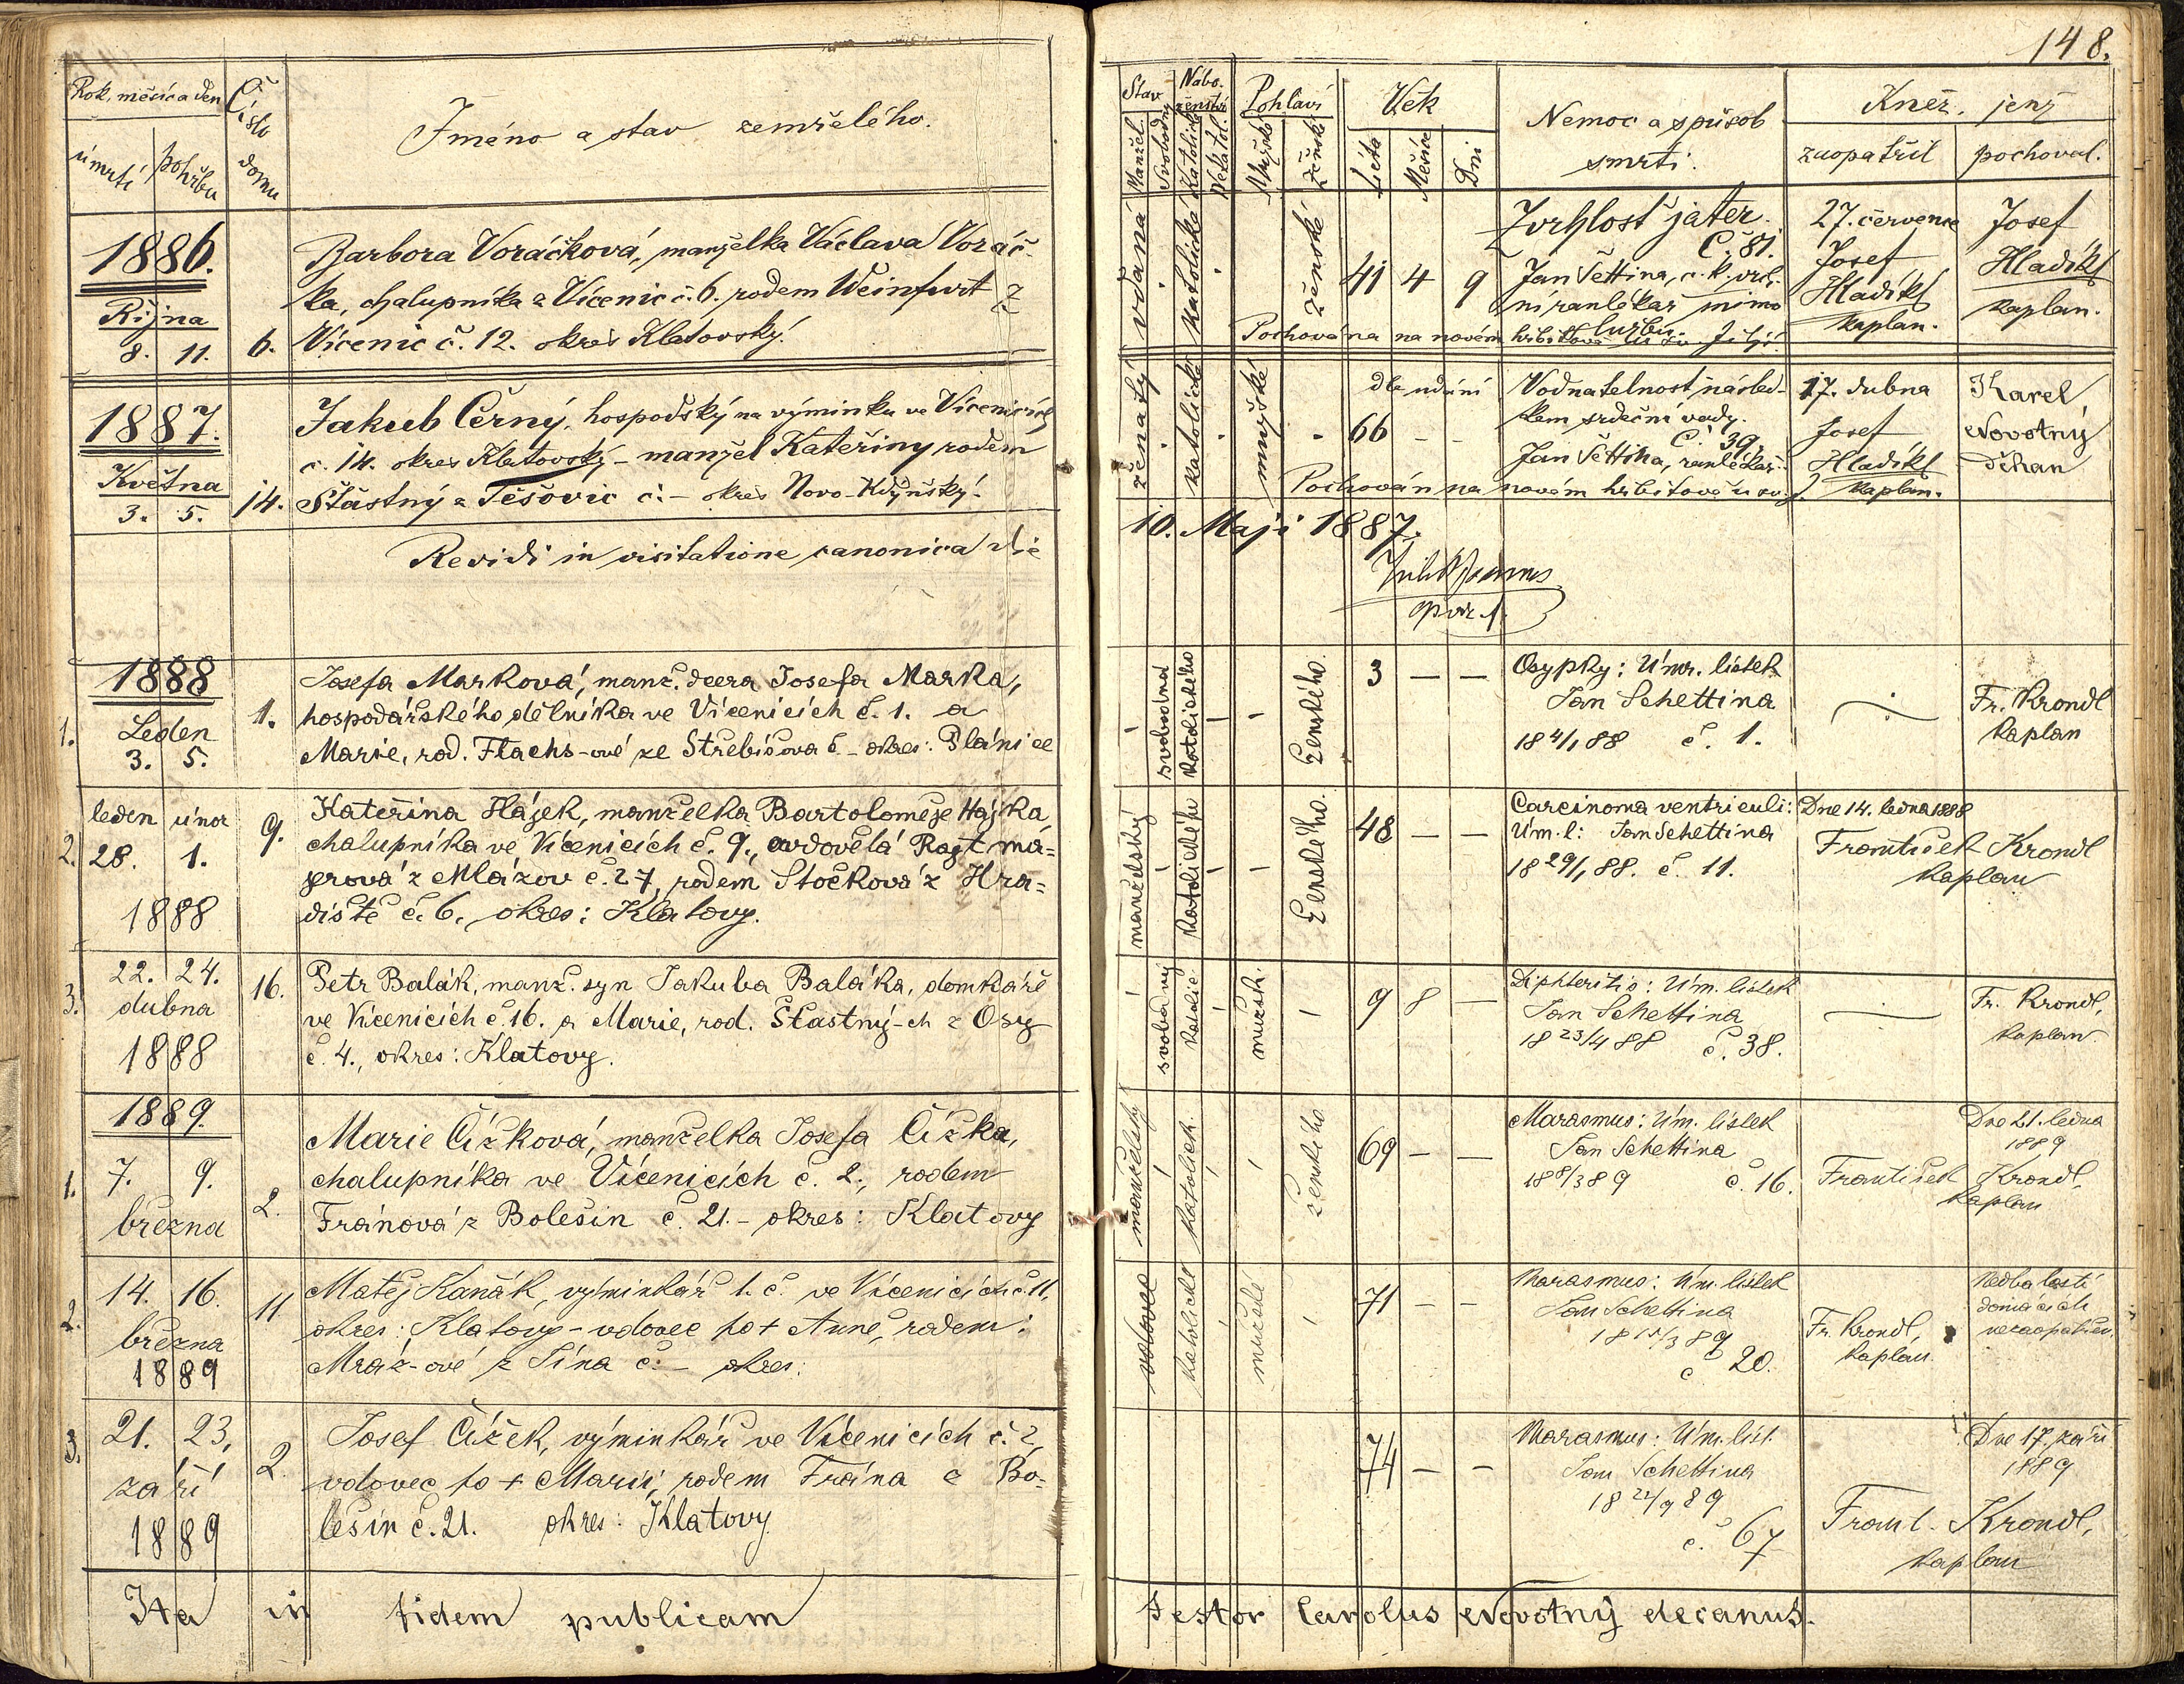 148.
Rok, měsíc a den
Číslo domu
úmrtí
pohřbu
Jméno a stav zemřelého.
Stav
Nábo-
ženství
Pohlaví
Věk
Nemoc a způsob
smrti.
Kněz, jenž
Manžel.
Svobodný
Katolické
Nekatol.
Mužské
Ženské
Léta
Měsíce
Dni
zaopatřil
pochoval.
1886.
Října
8. 11.
6.
Barbora Voráčková, manželka Václava Voráč-
ka, chalupníka z Vícenic č. 6. rodem Weinfurt z
Vícenic č. 12. okres Klatovský.
vdaná
katolické
ženské
41 4 9
Zvrhlost jater.
Č. 81.
Jan Šettina, c. k. vrch-
ní ranlékař mimo
službu.
27. července
Josef
Hladík
kaplan.
Josef
Hladík
kaplan.
Pochována na novém hřbitově u sv. Jiljí.
1887.
Května
3. 5.
14.
Jakub Černý, hospodský na výminku ve Vícenicích
č. 14. okres Klatovský – manžel Kateřiny rodem
Šťastný z Těšovic č. – okres Novo-Kdyňský.
ženatý
katolické
mužské
dle udání
66 – –
Vodnatelnost násled-
kem srdeční vady.
Č. 39.
Jan Šettina, ranlékař.
17. dubna
Josef
Hladík
kaplan.
Karel
Novotný
děkan
Pochován na novém hřbitově u sv. J.
Revidi in visitatione canonica die
10. Maji 1887.
1888
1.
Leden
3. 5.
1.
Josefa Marková, manž. dcera Josefa Marka,
hospodářského dělníka ve Vícenicích č. 1. a
Marie, rod. Flachs-ové ze Střebíčova č – okres: Plánice
svobodná
katolického
ženského.
3 – –
Osypky: Úmr. lístek
Jan Schettina
18 4/1 88 č. 1.
Fr. Krondl
kaplan
2.
leden únor
28. 1.
1888
9.
Kateřina Hájek, manželka Bartoloměje Hájka,
chalupníka ve Vícenicích č. 9., ovdovělá Rajtma-
jerová z Mlázov č. 27, rodem Stočková z Hra-
diště č. 6., okres: Klatovy.
manželský
katolického
ženského.
48 – –
Carcinoma ventriculi:
Úm. l: Jan Schettina
18 29/1 88. č. 11.
Dne 14. ledna 1888
František Krondl
kaplan
3.
22. 24.
dubna
1888
16.
Petr Balák, manž. syn Jakuba Baláka, domkáře
ve Vícenicích č. 16. a Marie, rod. Šťastný-ch z Osy
č. 4., okres: Klatovy.
svobodný
katolic.
mužsk.
9 8 –
Diphteritis: Úm. lístek
Jan Schettina
18 23/4 88 č. 38.
Fr. Krondl,
kaplan.
1889.
1.
7. 9.
března
2.
Marie Čížková, manželka Josefa Čížka,
chalupníka ve Vícenicích č. 2., rodem
Fránová z Bolešin č. 21. – okres: Klatovy
manželský
katolick.
ženského
69 – –
Marasmus: Úm. lístek
Jan Schettina
18 8/3 89 č. 16.
Dne 21. ledna
1889
František Krondl,
kaplan
2.
14. 16.
března
1889
11
Matěj Kaňák, výminkář 1. č. ve Vícenicích č. 11,
okres: Klatovy – vdovec po + Anně, rodem:
Mráz-ové z Týna č. – okres:
vdovec
katolické
mužské
71 – –
Marasmus: Úm. lístek
Jan Schettina
18 15/3 89
č 20.
Fr. Krondl,
kaplan.
Nedbalostí
domácích
nezaopatřen.
3.
21. 23.
září
1889
2.
Josef Čížek, výminkář ve Vícenicích č. 2,
vdovec po + Marii, rodem Frána z Bo-
lešin č. 21. okres: Klatovy
74 – –
Marasmus: Úm. líst.
Jan Schettina
18 22/9 89
č. 67
Dne 17. září
1889
Frant. Krondl,
kaplan
Ita in fidem publicam
testor Carolus Novotný decanus.